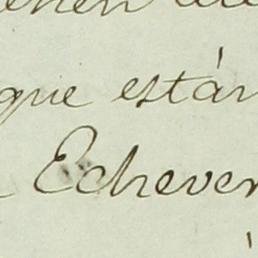 que están
Echever